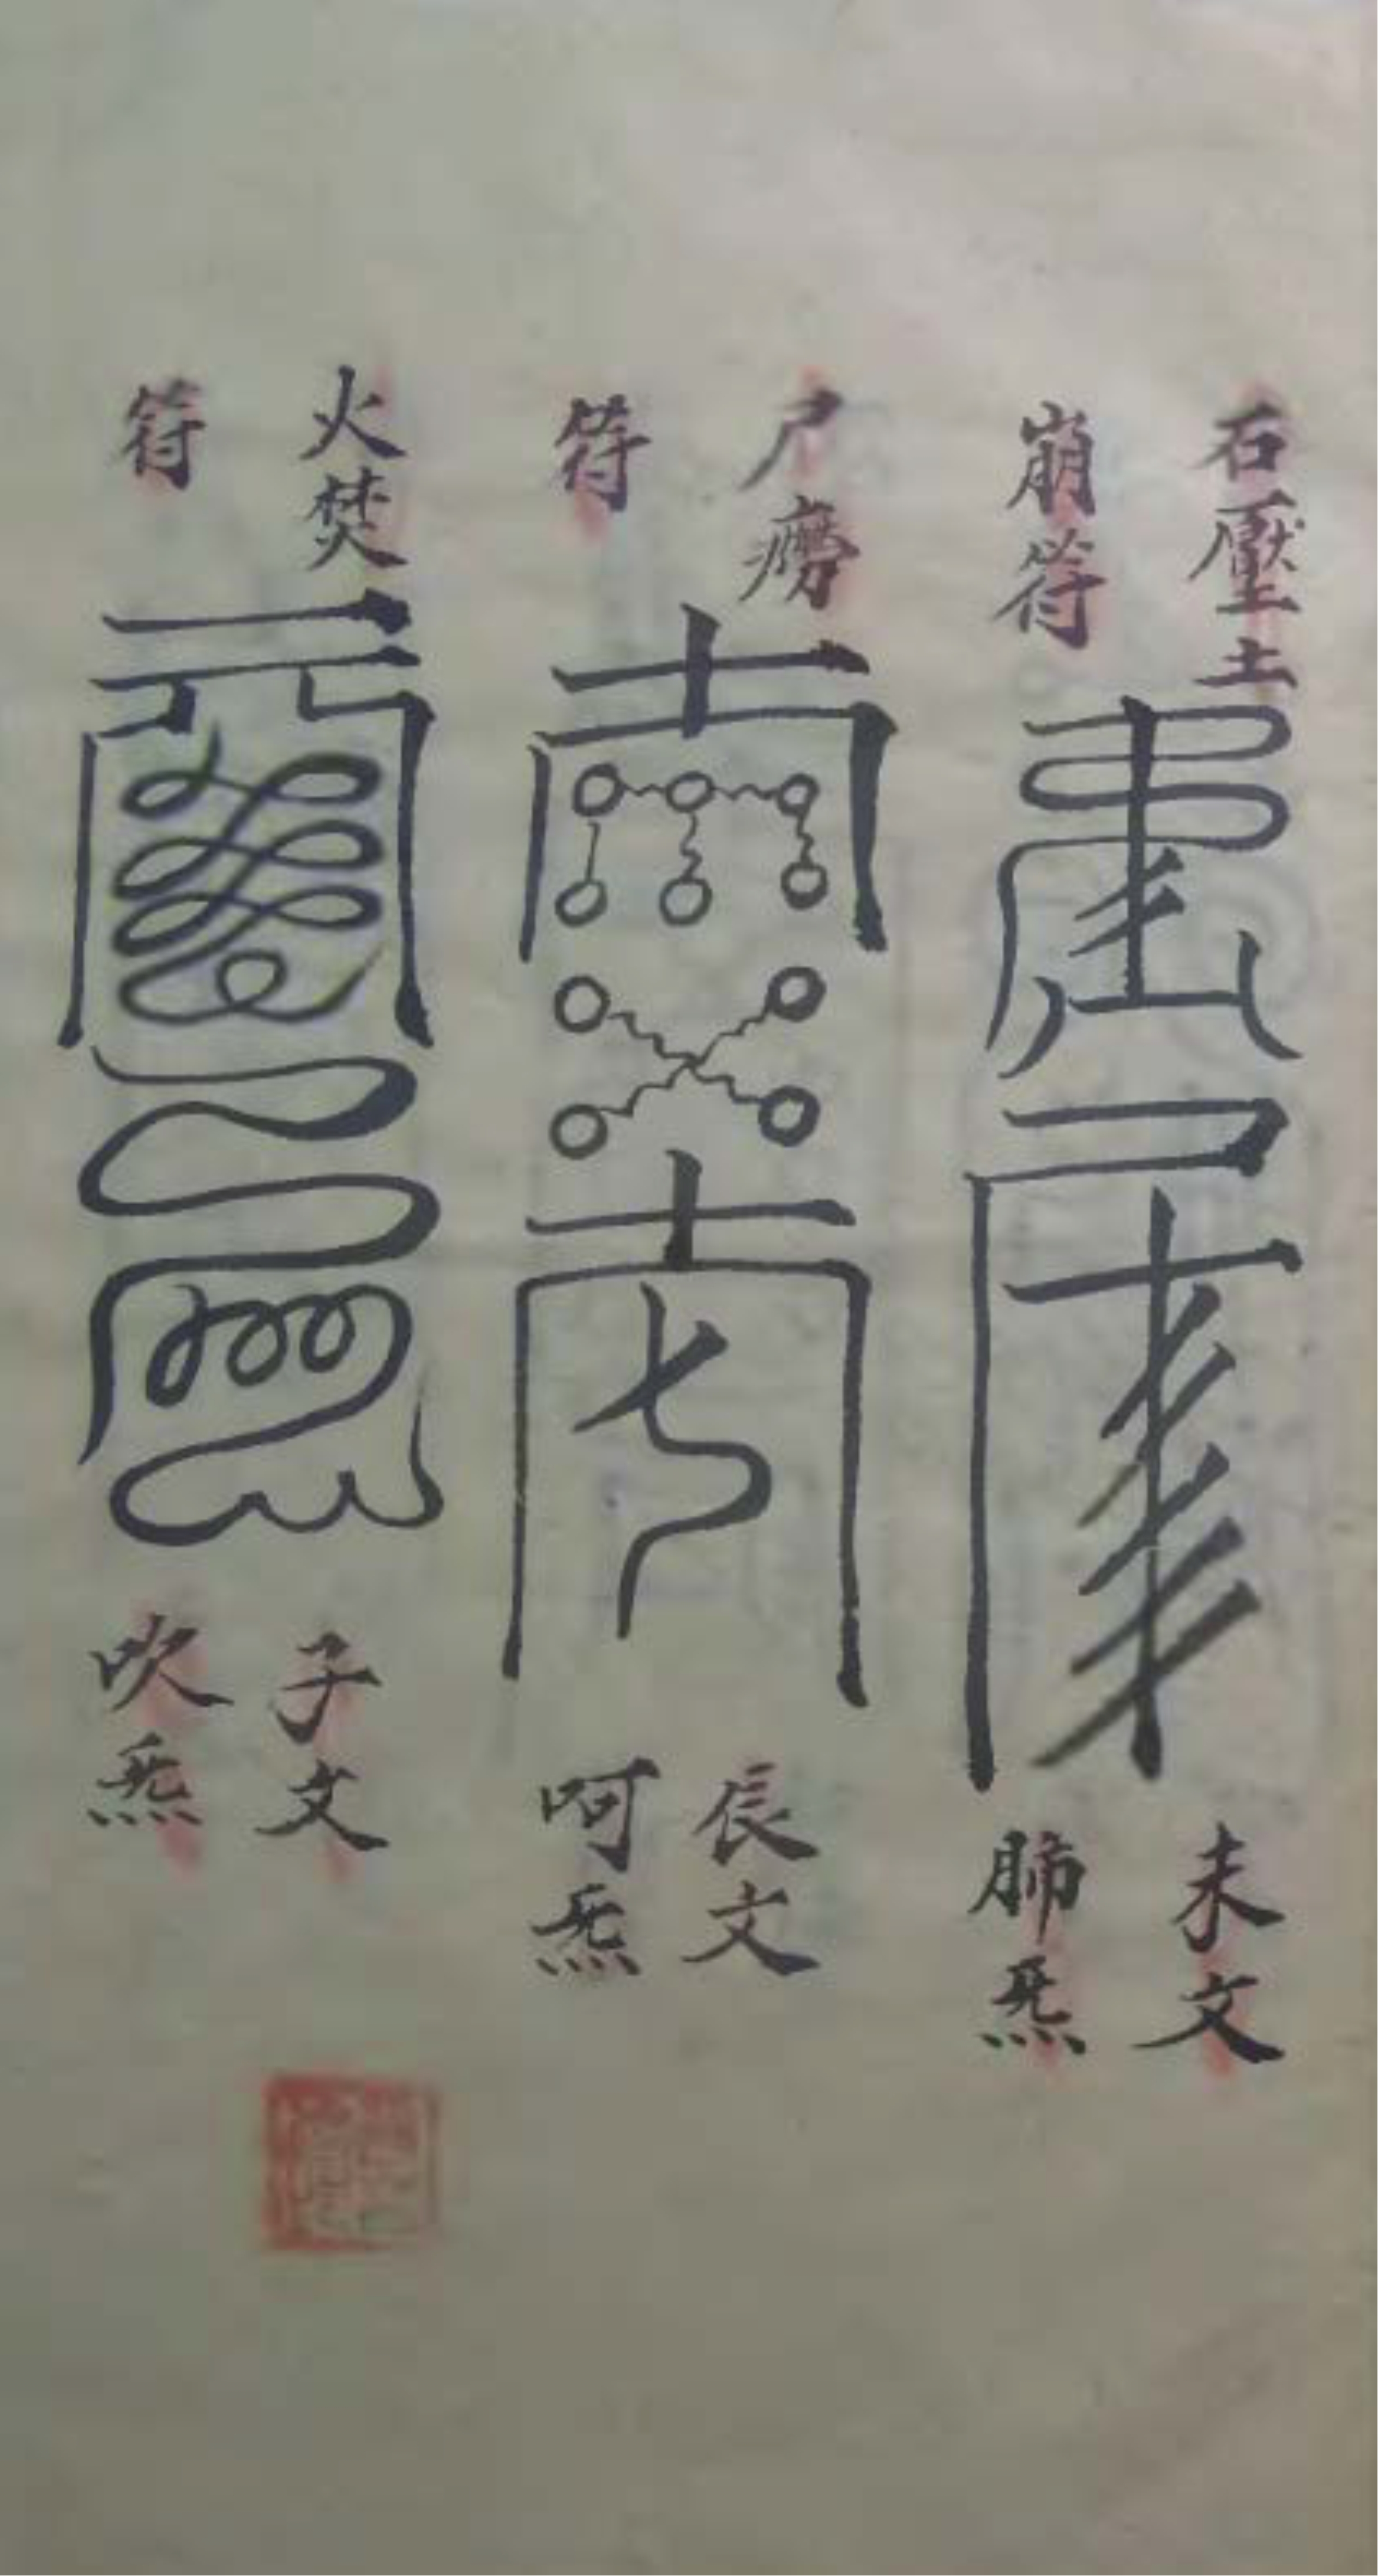 石壓土
崩符
未文
肺炁
尸癆
符
辰文
呵炁
火焚
符
子文
吹炁